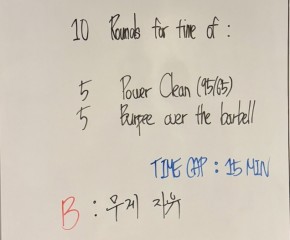 10 Rounds for time of :
5 Power Clean (95/65)
5 Burpee over the barbell
TIME CAP : 15 MIN
B : 무게 자유